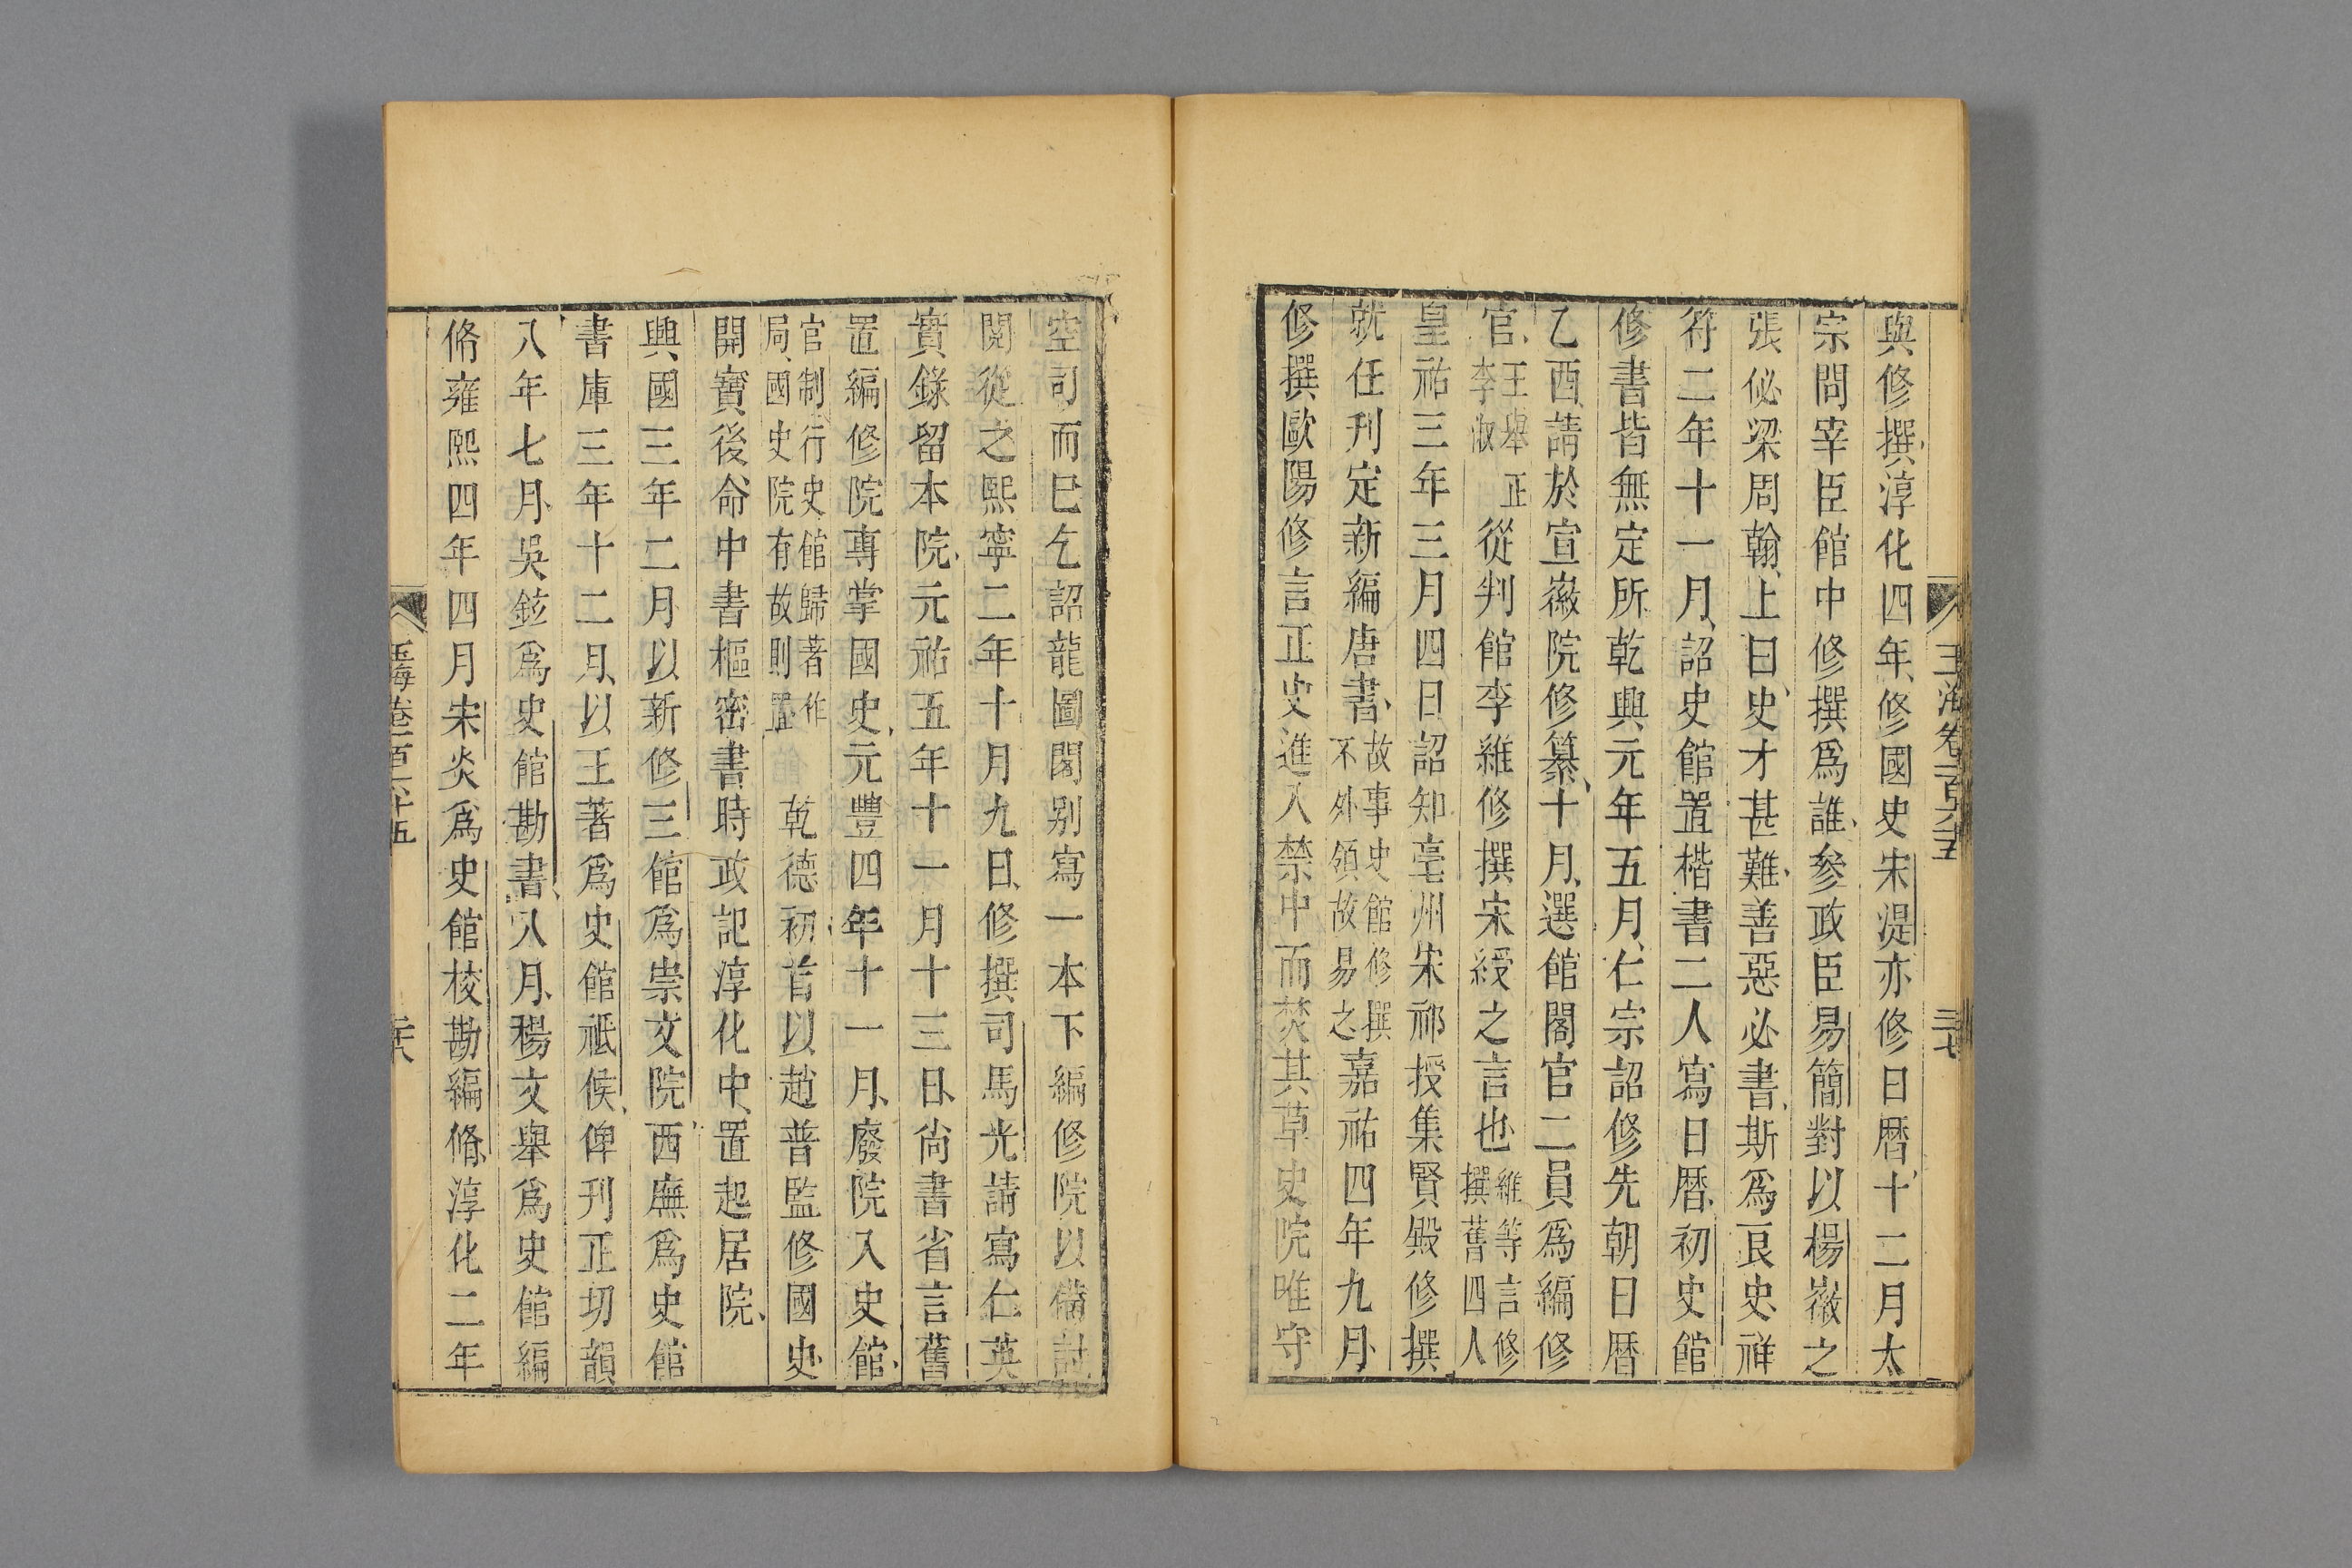 與修撰淳化四年修國史宋湜亦修日曆十二月太
宗問宰臣館中修撰爲誰參政臣易簡對以楊徽之
張佖梁周翰上曰史才甚難善惡必書斯爲良史祥
符二年十一月詔史館置楷書二人寫日曆初史館
修書皆無定所乾興元年五月仁宗詔修先朝日曆
乙酉請於宣徽院修纂十月選館閣官二員爲編修
官王舉正李淑從判館李維修撰宋綬之言也維等言修撰舊四人
皇祐三年三月四日詔知亳州宋祁授集賢殿修撰
就任刊定新編唐書故事史館修撰不外領故易之嘉祐四年九月
修撰歐陽修言正史進入禁中而焚其草史院唯守
空司而巳乞詔龍圖閣别寫一本下編修院以備討
閱從之熙寧二年十月九日修撰司馬光請寫仁英
實錄留本院元祐五年十一月十三日尚書省言舊
置編修院專掌國史元豐四年十一月廢院入史館
官制行史館歸著作局國史院有故則置乾德初首以趙普監修國史
開寶後命中書樞密書時政記淳化中置起居院
興國三年二月以新修三館爲崇文院西廡爲史館
書庫三年十二月以王著爲史館祗候俾刊正切韻
八年七月吳鉉爲史館勘書八月楊文舉爲史館編
脩雍熙四年四月宋炎爲史館校勘編脩淳化二年
玉海卷一百六十五